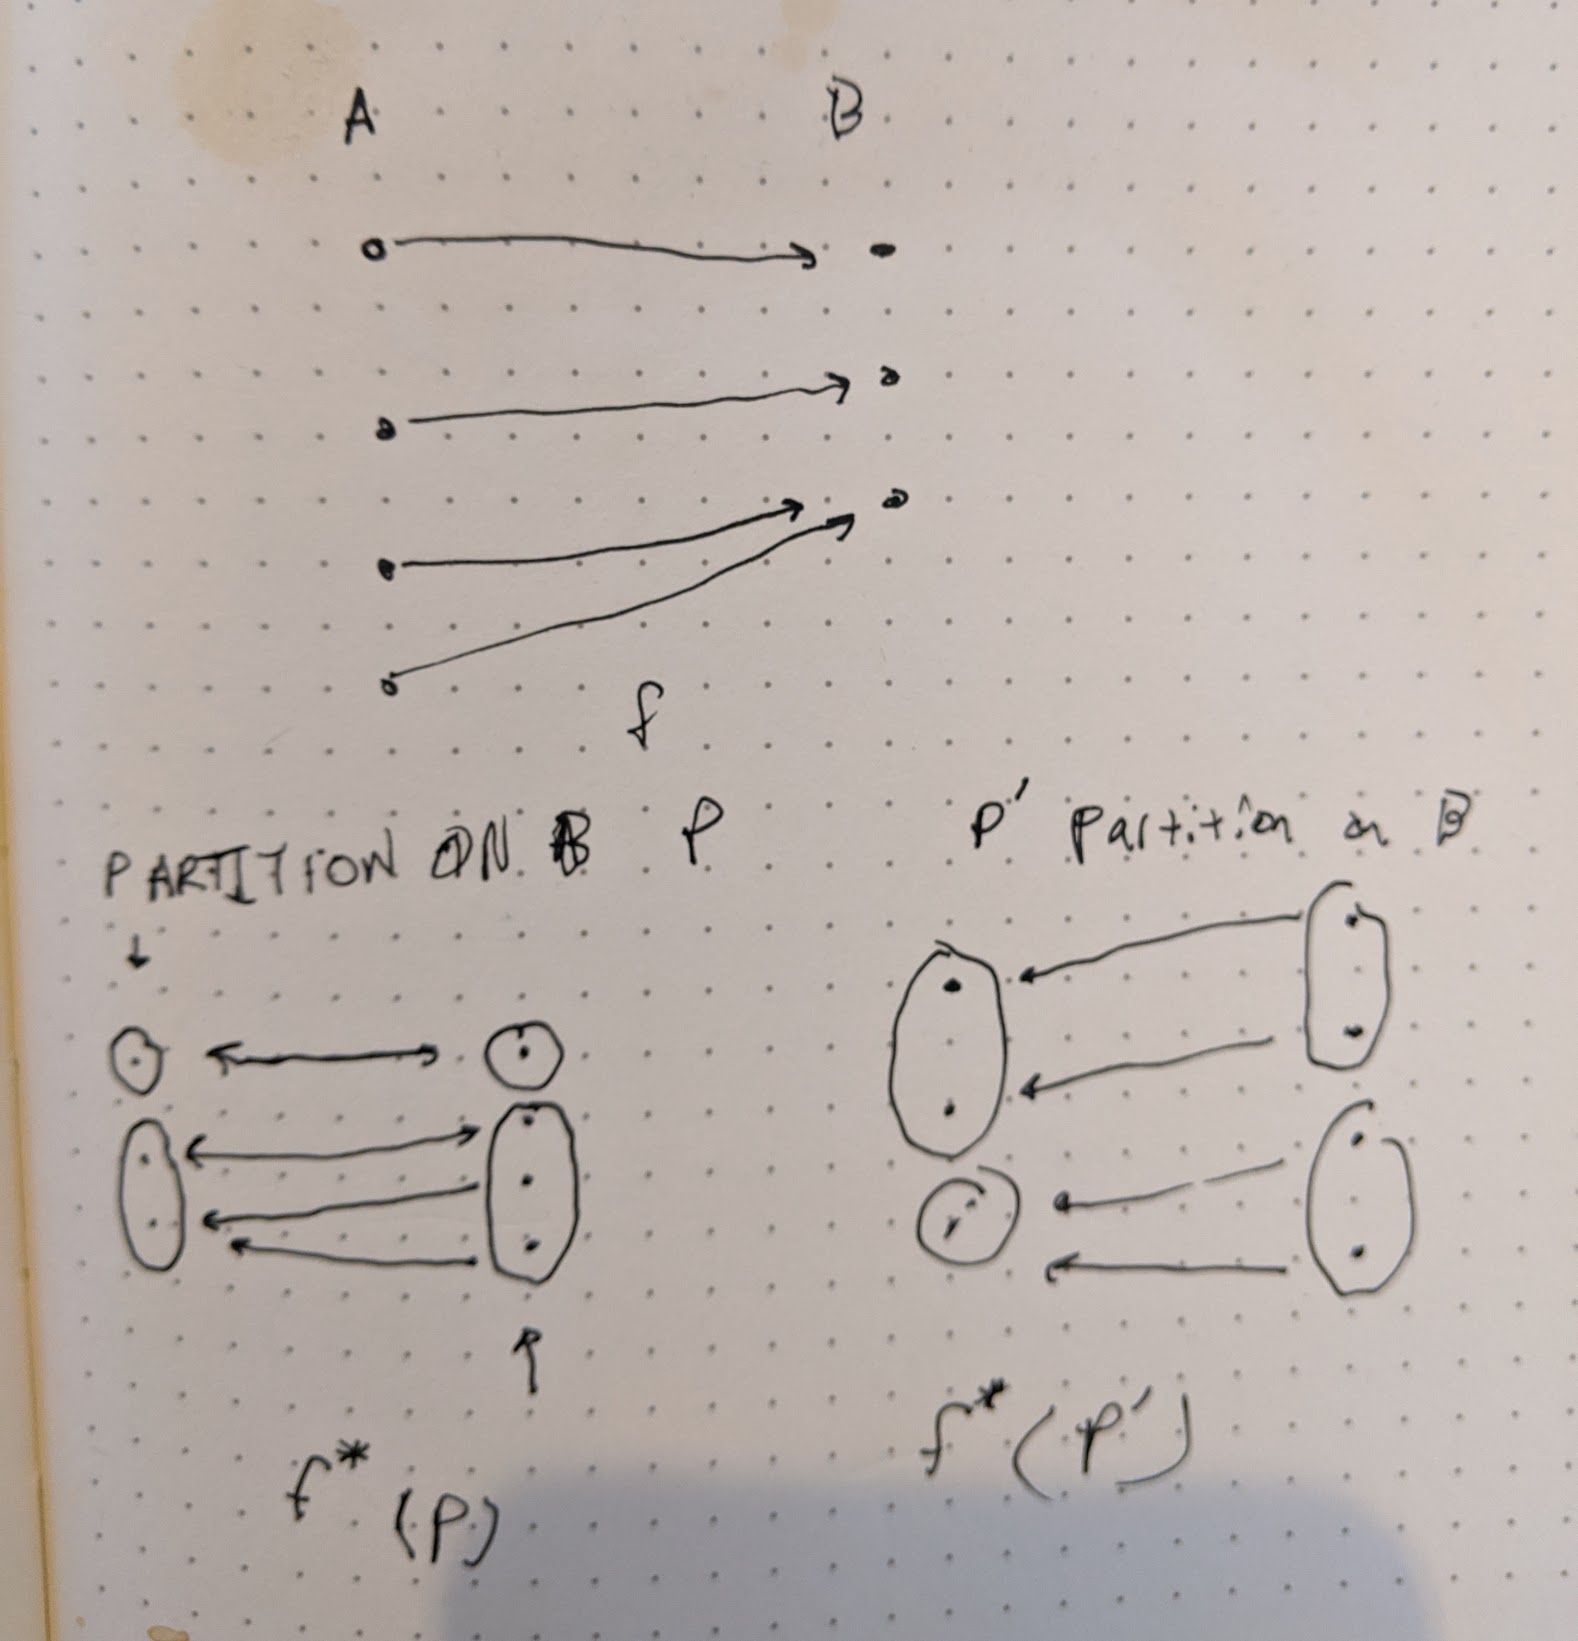 A B
f
PARTITION ON B P
P′ Partition on B
f* (P)
f* (P′)